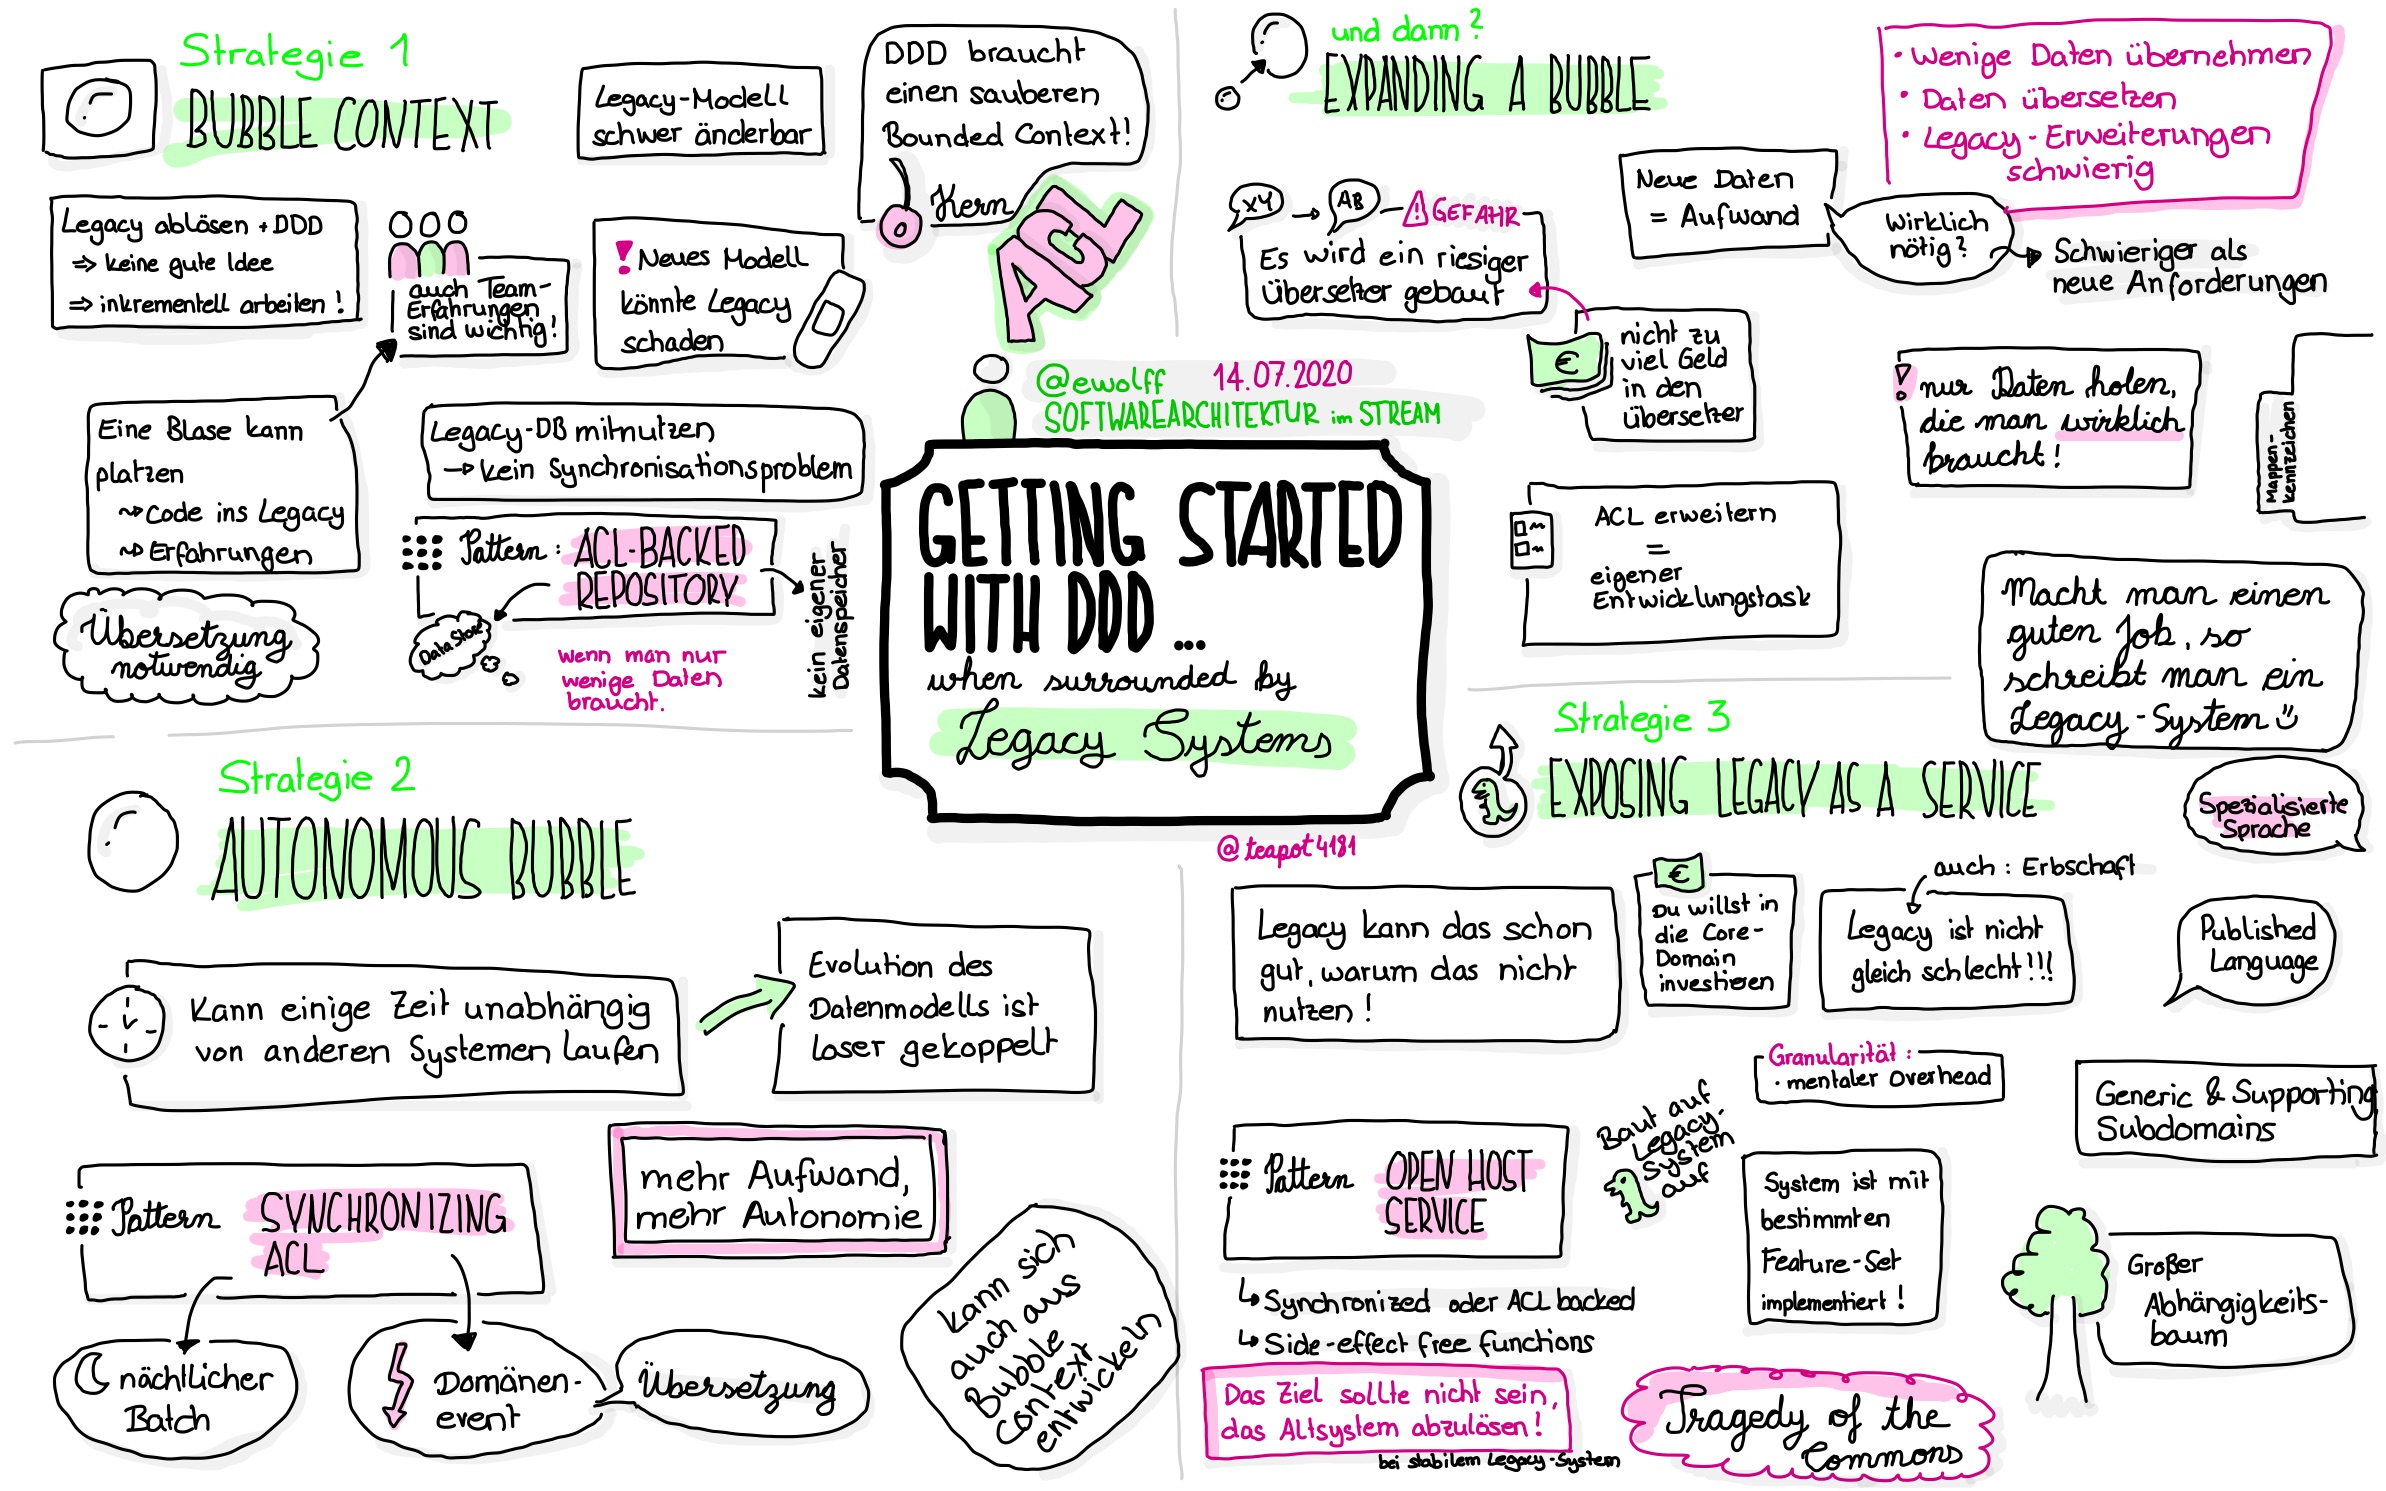 Strategie 1
BUBBLE CONTEXT
Legacy-Modell
schwer änderbar
DDD braucht
einen sauberen
Bounded Context!
Kern
ACL
Legacy ablösen + DDD
⇒ keine gute Idee
⇒ inkrementell arbeiten!
auch Team-
Erfahrungen
sind wichtig!
! Neues Modell
könnte Legacy
schaden
Eine Blase kann
platzen
↝ Code ins Legacy
↝ Erfahrungen
Legacy-DB mitnutzen
→ kein Synchronisationsproblem
Pattern: ACL-BACKED
REPOSITORY
Data Store
kein eigener
Datenspeicher
wenn man nur
wenige Daten
braucht.
Übersetzung
notwendig
@ewolff 14.07.2020
SOFTWAREARCHITEKTUR im STREAM
GETTING STARTED
WITH DDD ...
when surrounded by
Legacy Systems
@teapot4181
und dann?
EXPANDING A BUBBLE
• Wenige Daten übernehmen
• Daten übersetzen
• Legacy-Erweiterungen
schwierig
XY → AB
! GEFAHR
Es wird ein riesiger
Übersetzer gebaut
Neue Daten
= Aufwand
Wirklich
nötig?
Schwieriger als
neue Anforderungen
€
nicht zu
viel Geld
in den
Übersetzer
! nur Daten holen,
die man wirklich
braucht!
Mappen-
kennzeichen
ACL erweitern
=
eigener
Entwicklungstask
Macht man einen
guten Job, so
schreibt man ein
Legacy-System
Strategie 2
AUTONOMOUS BUBBLE
Kann einige Zeit unabhängig
von anderen Systemen laufen
Evolution des
Datenmodells ist
loser gekoppelt
Pattern SYNCHRONIZING
ACL
mehr Aufwand,
mehr Autonomie
nächtlicher
Batch
Domänen-
event
Übersetzung
kann sich
auch aus
Bubble
context
entwickeln
Strategie 3
EXPOSING LEGACY AS A SERVICE
Spezialisierte
Sprache
Legacy kann das schon
gut, warum das nicht
nutzen!
€
Du willst in
die Core-
Domain
investieren
auch: Erbschaft
Legacy ist nicht
gleich schlecht!!!
Published
Language
Granularität:
• mentaler Overhead
Generic & Supporting
Subdomains
Pattern OPEN HOST
SERVICE
Baut auf
Legacy-
System
auf
System ist mit
bestimmten
Feature-Set
implementiert!
↳ Synchronized oder ACL backed
↳ Side-effect free functions
Großer
Abhängigkeits-
baum
Das Ziel sollte nicht sein,
das Altsystem abzulösen!
bei stabilem Legacy-System
Tragedy of the
Commons